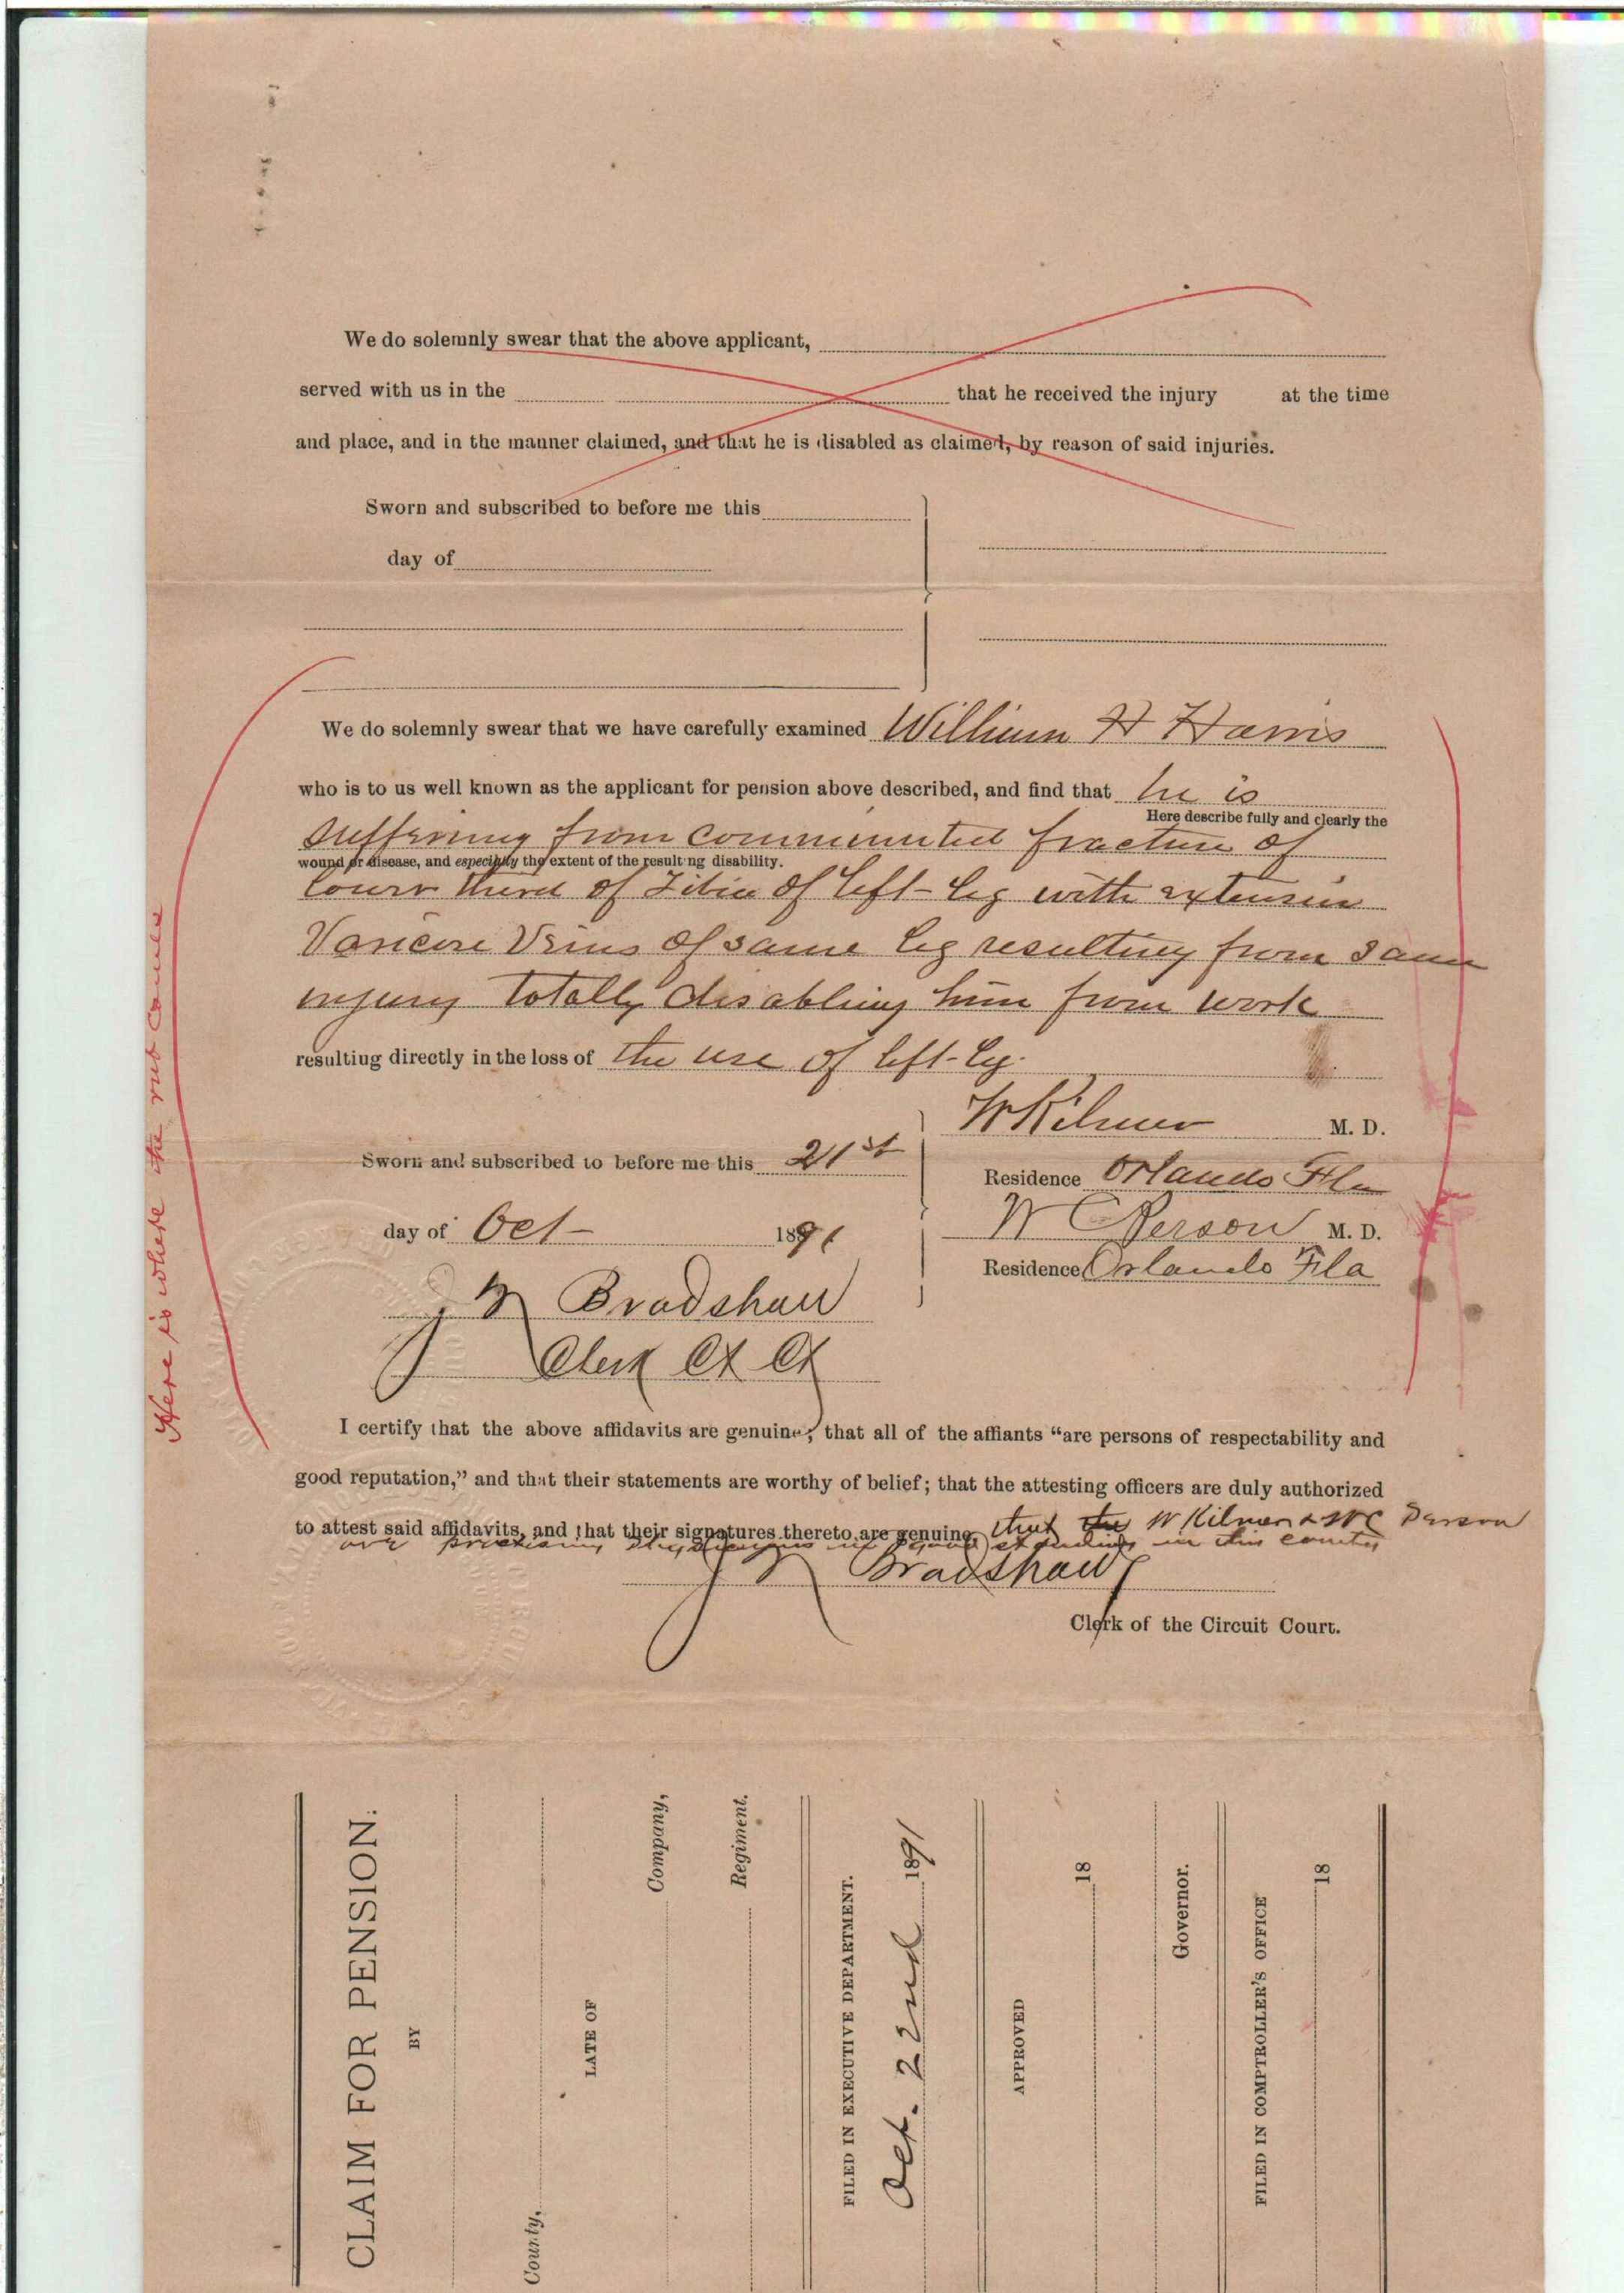 We do solemnly swear that the above applicant,
served with us in the that he received the injury at the time
and place, and in the manner claimed, and that he is disabled as claimed, by reason of said injuries.
Sworn and subscribed to before me this
day of
We do solemnly swear that we have carefully examined William H Harris
who is to us well known as the applicant for pension above described, and find that he is
Here describe fully and clearly the
suffering from comminuted fracture of
wound or disease, and especially the extent of the resulting disability.
lower third of Tibia of left leg with extensive
Varicose Veins of same leg resulting from same
injury totally disabling him from work
resulting directly in the loss of the use of left leg.
W Kilmer M. D.
Sworn and subscribed to before me this 21st
Residence Orlando Fla
day of Oct 1891
W C Person M. D.
Residence Orlando Fla
J M Bradshaw
Clerk Ct Ct
Here is where the rub comes
I certify that the above affidavits are genuine, that all of the affiants "are persons of respectability and
good reputation," and that their statements are worthy of belief; that the attesting officers are duly authorized
to attest said affidavits, and that their signatures thereto are genuine, that the W Kilmer & W C Person
are practising physicians in good standing in this county
J M Bradshaw
Clerk of the Circuit Court.
CLAIM FOR PENSION.
BY
County,
LATE OF
Company,
Regiment.
FILED IN EXECUTIVE DEPARTMENT.
Oct. 22nd 1891
APPROVED
18
Governor.
FILED IN COMPTROLLER'S OFFICE
18